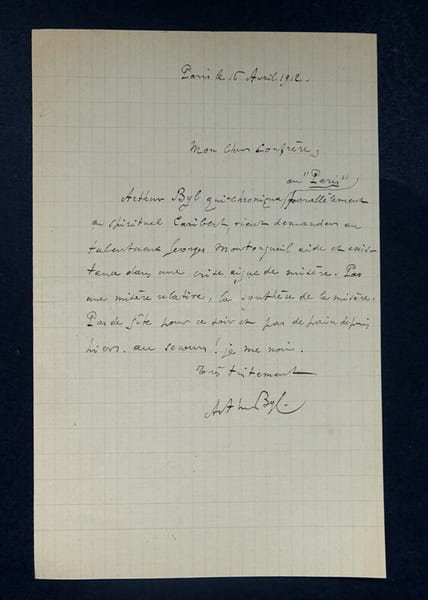 Paris le 16 Avril 1912.
Mon Cher Confrère,
au "Paris"
Arthur Byl qui chroniqua parallèlement
au spirituel Caribert vient demander au
talentueux Georges Montorgueil aide et assis-
tance dans une crise aigue de misère. Pas
une misère relative, la synthèse de la misère.
Pas de gîte pour ce soir et pas de pain depuis
hier. au secours! je me noie.
Très tristement
Arthur Byl.